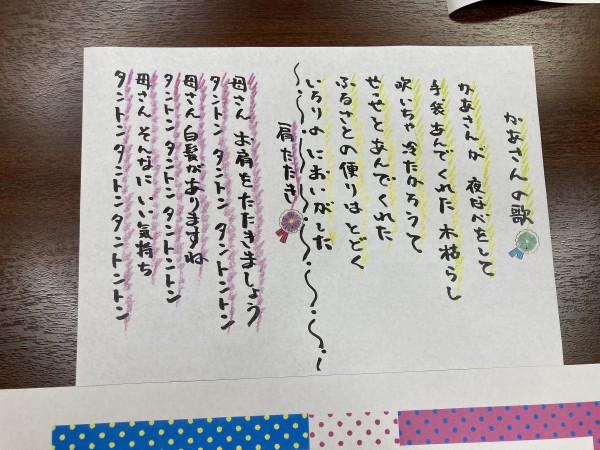 かあさんの歌
かあさんが 夜なべをして
手袋あんでくれた 木枯らし
吹いちゃ 冷たかろうて
せっせとあんでくれた
ふるさとの便りは とどく
いろりの においがした
肩たたき
母さん お肩をたたきましょう
タントン タントン タントントン
母さん 白髪がありますね
タントン タントン タントントン
母さん そんなに いい気持ち
タントン タントン タントントン